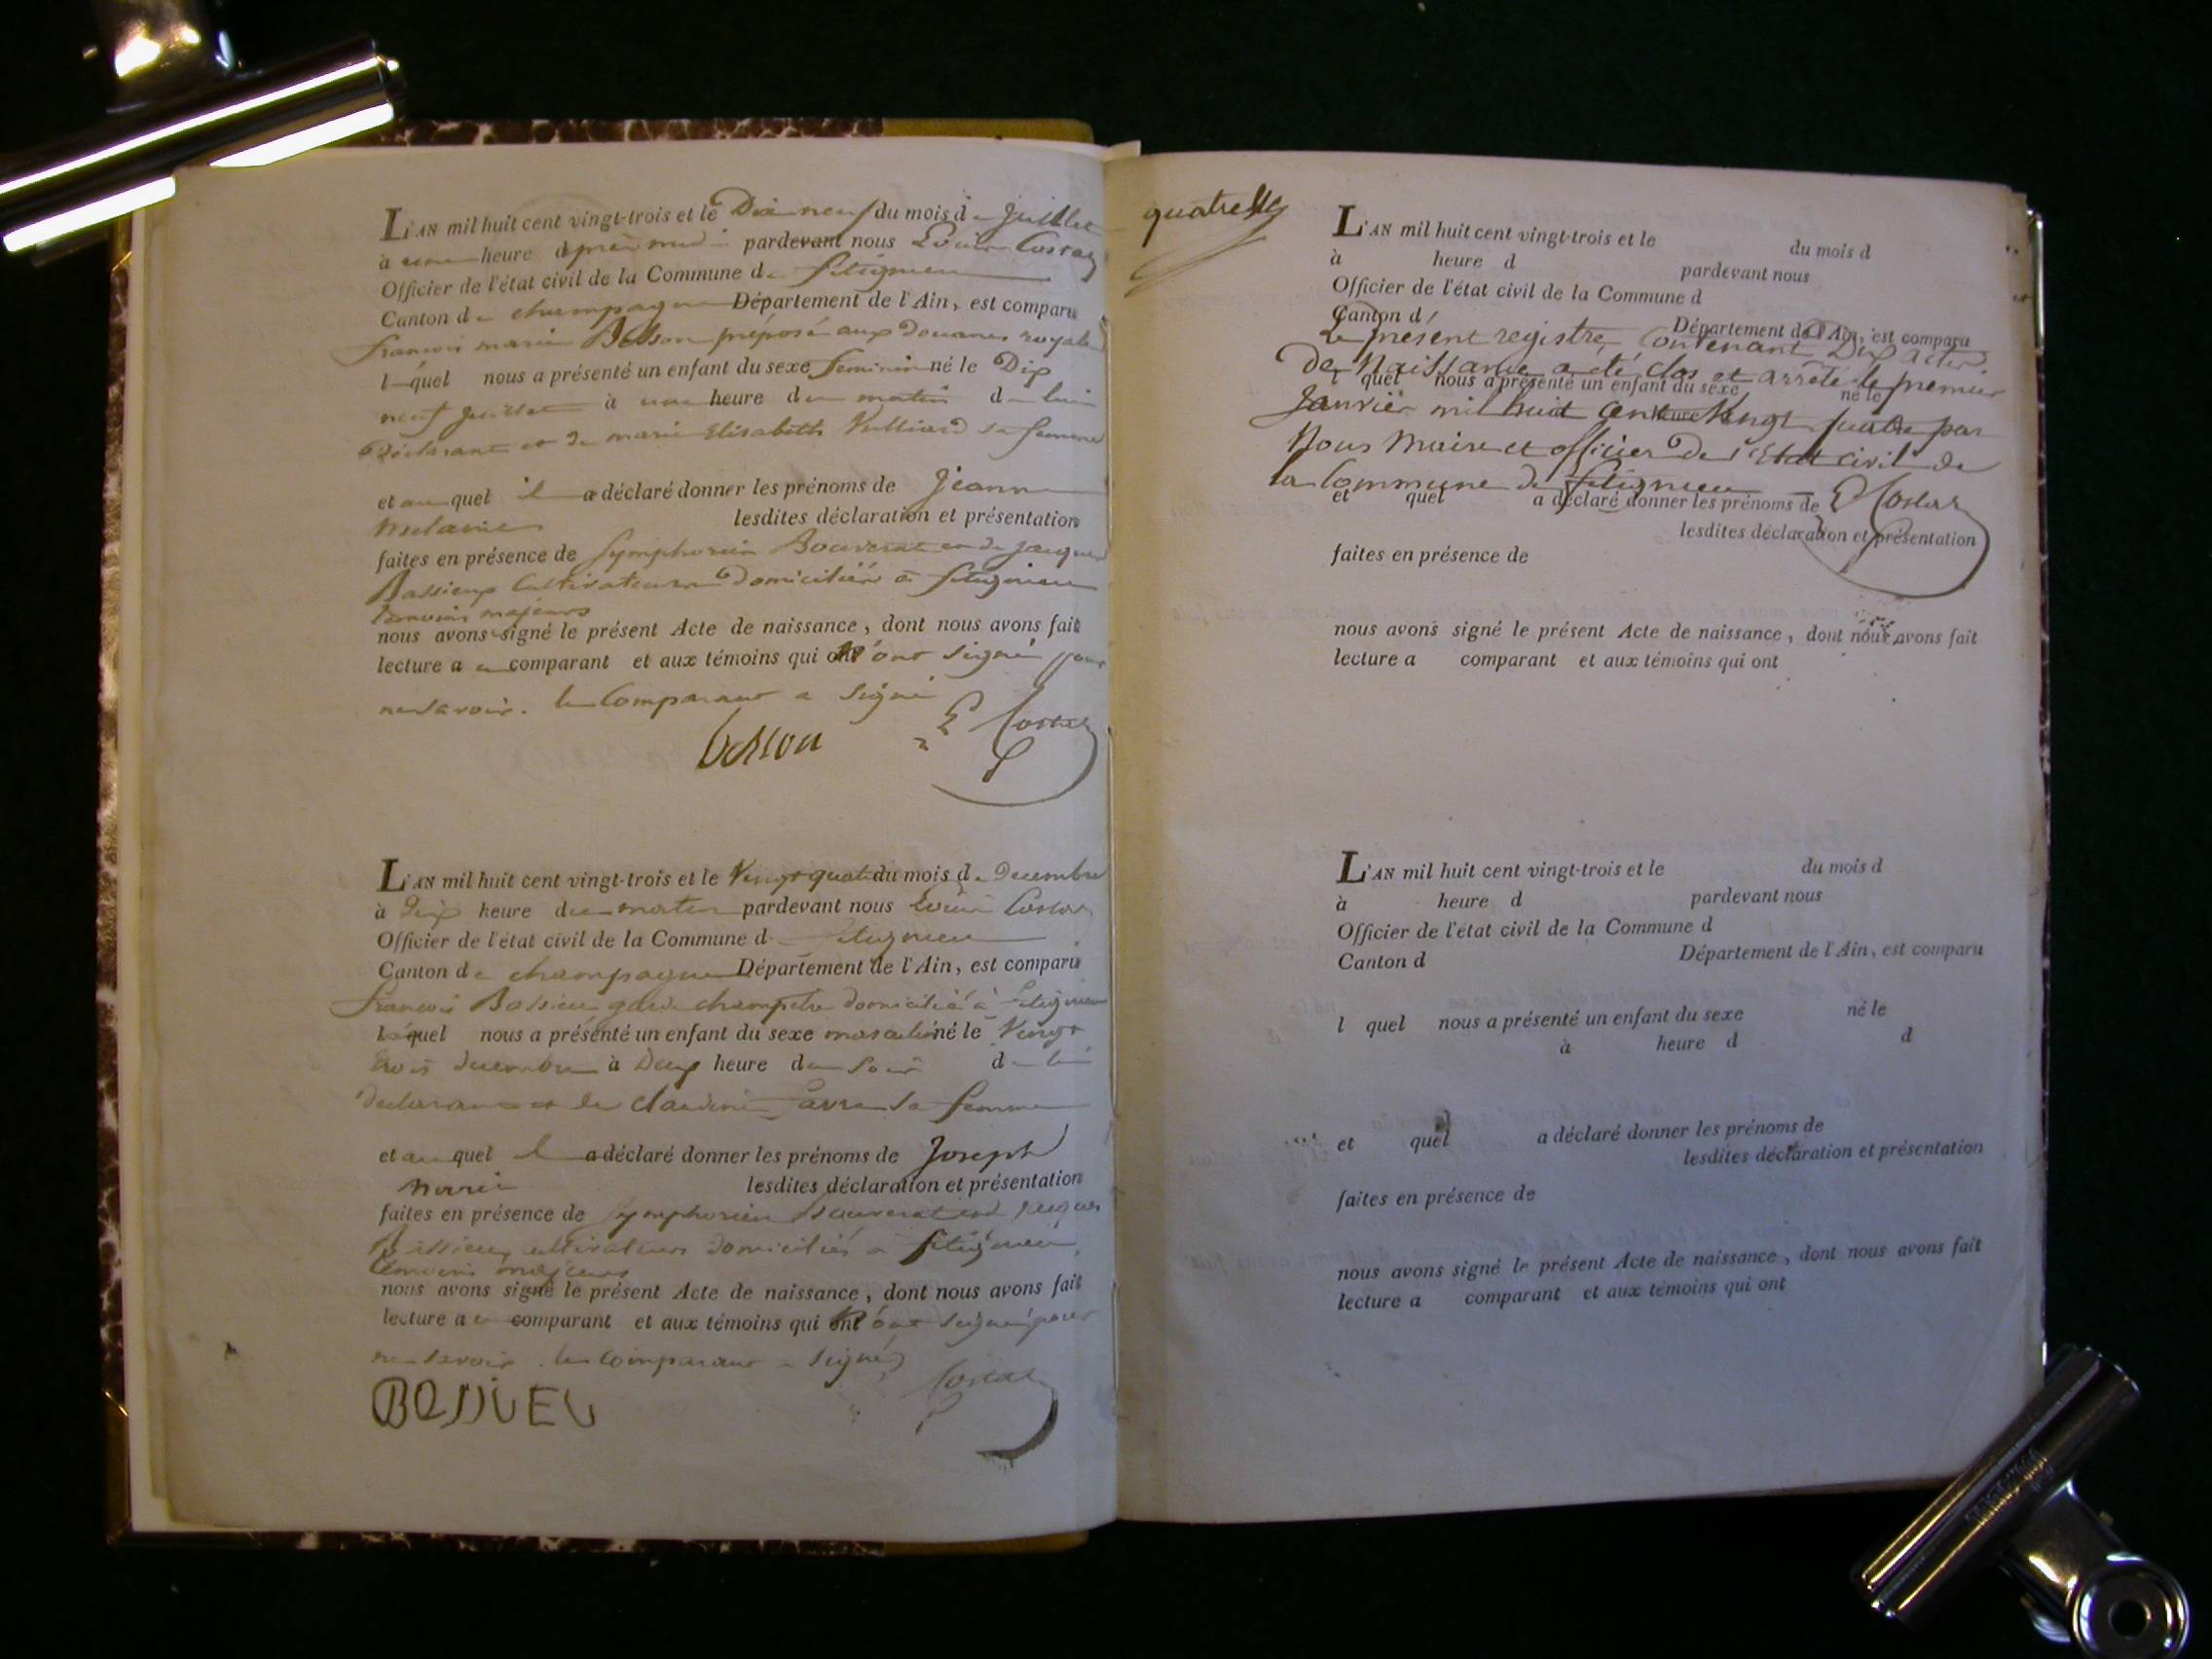 L'AN mil huit cent vingt-trois et le Dix neuf du mois de Juillet
à une heure après midi pardevant nous Costaz
Officier de l'état civil de la Commune de fitignieu
Canton de champagne Département de l'Ain, est comparu
francois marie Besson préposé aux Douanes royales
lequel nous a présenté un enfant du sexe feminin né le Dix
neuf Juillet à une heure du matin de lui
Déclarant et de marie Elisabeth Vulliard sa femme
et auquel il a déclaré donner les prénoms de Jeanne
melanie lesdites déclaration et présentation
faites en présence de Symphorien Bouverat et de Jacques
Bassieux Cultivateurs Domiciliés à fitignieu
temoins majeurs
nous avons signé le présent Acte de naissance, dont nous avons fait
lecture au comparant et aux témoins qui n'ont signé pour
ne savoir. le Comparant a signé
besson E Costaz
L'AN mil huit cent vingt-trois et le Vingt quatre du mois de Decembre
à dix heure du matin pardevant nous Costaz
Officier de l'état civil de la Commune d fitignieu
Canton de champagne Département de l'Ain, est comparu
francois Bassieu garde champetre domicilié à fitignieu
lequel nous a présenté un enfant du sexe masculin né le Vingt
trois decembre à Deux heure du soir de lui
Declarant et de claudine sa femme
et auquel il a déclaré donner les prénoms de Joseph
marie lesdites déclaration et présentation
faites en présence de Symphorien Bouverat et de jacques
Bassieux cultivateurs domiciliés a fitignieu
temoins majeurs
nous avons signé le présent Acte de naissance, dont nous avons fait
lecture au comparant et aux témoins qui n'ont signé pour
ne savoir. le Comparant a signé
BOSSIEU Costaz
quatre
L'AN mil huit cent vingt-trois et le du mois d
à heure d pardevant nous
Officier de l'état civil de la Commune d
Canton d Département de l'Ain, est comparu
Le présent registre, Contenant Dix actes
De Naissance a été clos et arrêté le premier
l quel nous a présenté un enfant du sexe né le
Janvier mil huit Cent Vingt quatre par
heure
Nous Maire et officier De l'Etat civil de
la Commune de fitignieu E Costaz
et quel a déclaré donner les prénoms de
lesdites déclaration et présentation
faites en présence de
nous avons signé le présent Acte de naissance, dont nous avons fait
lecture a comparant et aux témoins qui ont
L'AN mil huit cent vingt-trois et le du mois d
à heure d pardevant nous
Officier de l'état civil de la Commune d
Canton d Département de l'Ain, est comparu
l quel nous a présenté un enfant du sexe né le
à heure d d
et quel a déclaré donner les prénoms de
lesdites déclaration et présentation
faites en présence de
nous avons signé le présent Acte de naissance, dont nous avons fait
lecture a comparant et aux témoins qui ont